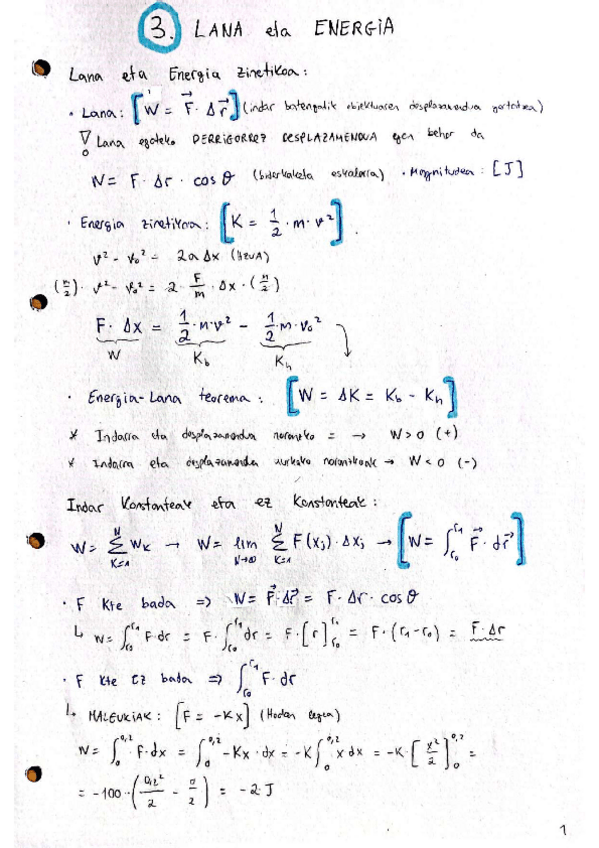 3. LANA eta ENERGIA
Lana eta Energia zinetikoa:
· Lana: [W = F⃗ · Δr⃗] (indar batengatik objektuaren desplazamendua gertatzea)
∇ Lana egoteko DERRIGORREZ DESPLAZAMENDUA egon behar da
W = F · Δr · cos θ (biderkaketa eskalarra) · Magnitudea: [J]
· Energia zinetikoa: [K = 1/2 · m · v²].
v² - v₀² = 2a Δx (HZUA)
(m/2) · v² - v₀² = 2 · F/m · Δx · (m/2)
F · Δx = 1/2 · m · v² - 1/2 · m · v₀²
W K_b K_h
· Energia-Lana teorema: [W = ΔK = K_b - K_h]
* Indarra eta desplazamendua noranzko = → W > 0 (+)
* Indarra eta desplazamendua aurkako noranzkoak → W < 0 (-)
Indar Konstanteak eta ez Konstanteak:
W = Σ_{K=1}^{N} W_K → W = lim_{N→∞} Σ_{K=1}^{N} F(x_j) · Δx_j → [W = ∫_{r₀}^{r₁} F⃗ · dr⃗]
· F Kte bada => W = F⃗ · Δr⃗ = F · Δr · cos θ
↳ W = ∫_{r₀}^{r₁} F · dr = F · ∫_{r₀}^{r₁} dr = F · [r]_{r₀}^{r₁} = F · (r₁ - r₀) = F · Δr
· F Kte EZ bada => ∫_{r₀}^{r₁} F · dr
↳ MALGUKIAK: [F = -Kx] (Hooken legea)
W = ∫_0^{0,2} F · dx = ∫_0^{0,2} -Kx · dx = -K ∫_0^{0,2} x dx = -K · [x²/2]_0^{0,2} =
= -100 · (0,2²/2 - 0/2) = -2 J
1